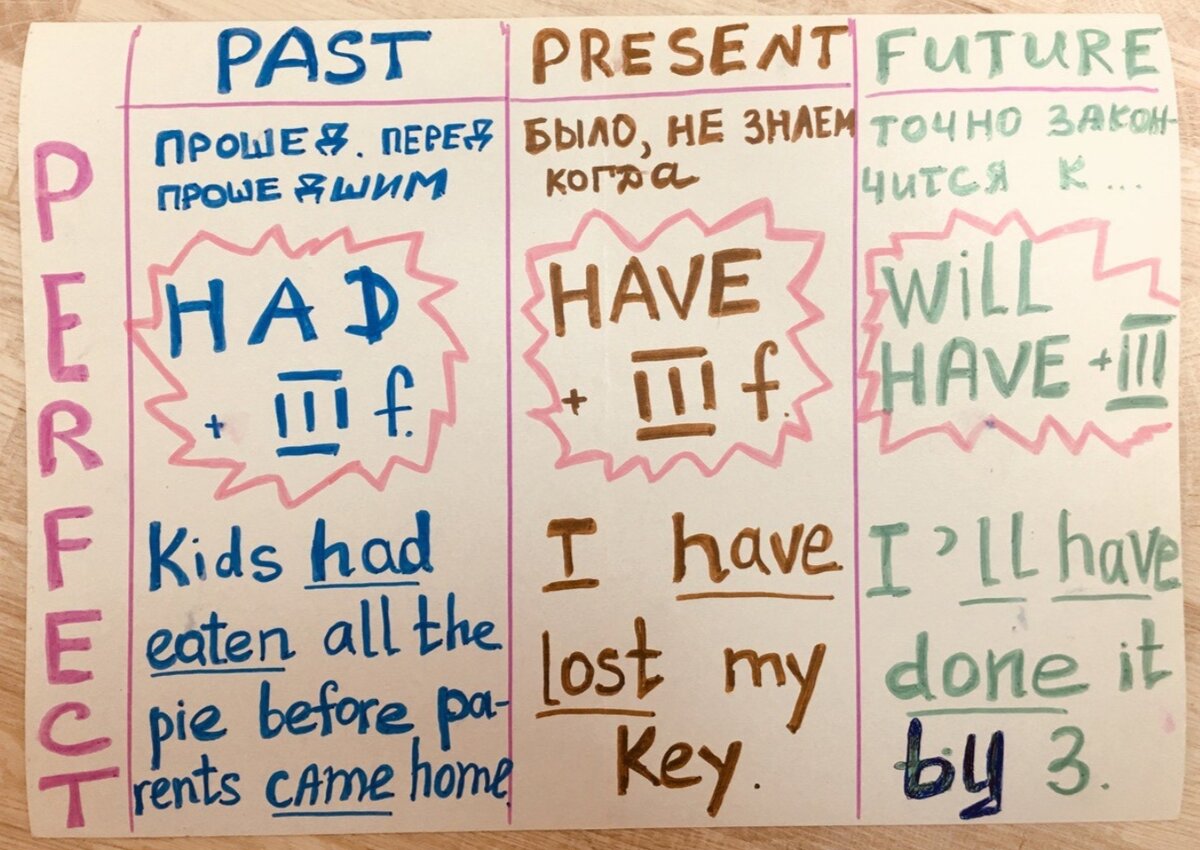 PERFECT
PAST
ПРОШЕД. ПЕРЕД
ПРОШЕДШИМ
HAD
+ III f.
Kids had
eaten all the
pie before pa-
rents came home.
PRESENT
БЫЛО, НЕ ЗНАЕМ
КОГДА
HAVE
+ III f.
I have
lost my
key.
FUTURE
ТОЧНО ЗАКОН-
ЧИТСЯ К...
WiLL
HAVE + III
I'll have
done it
by 3.